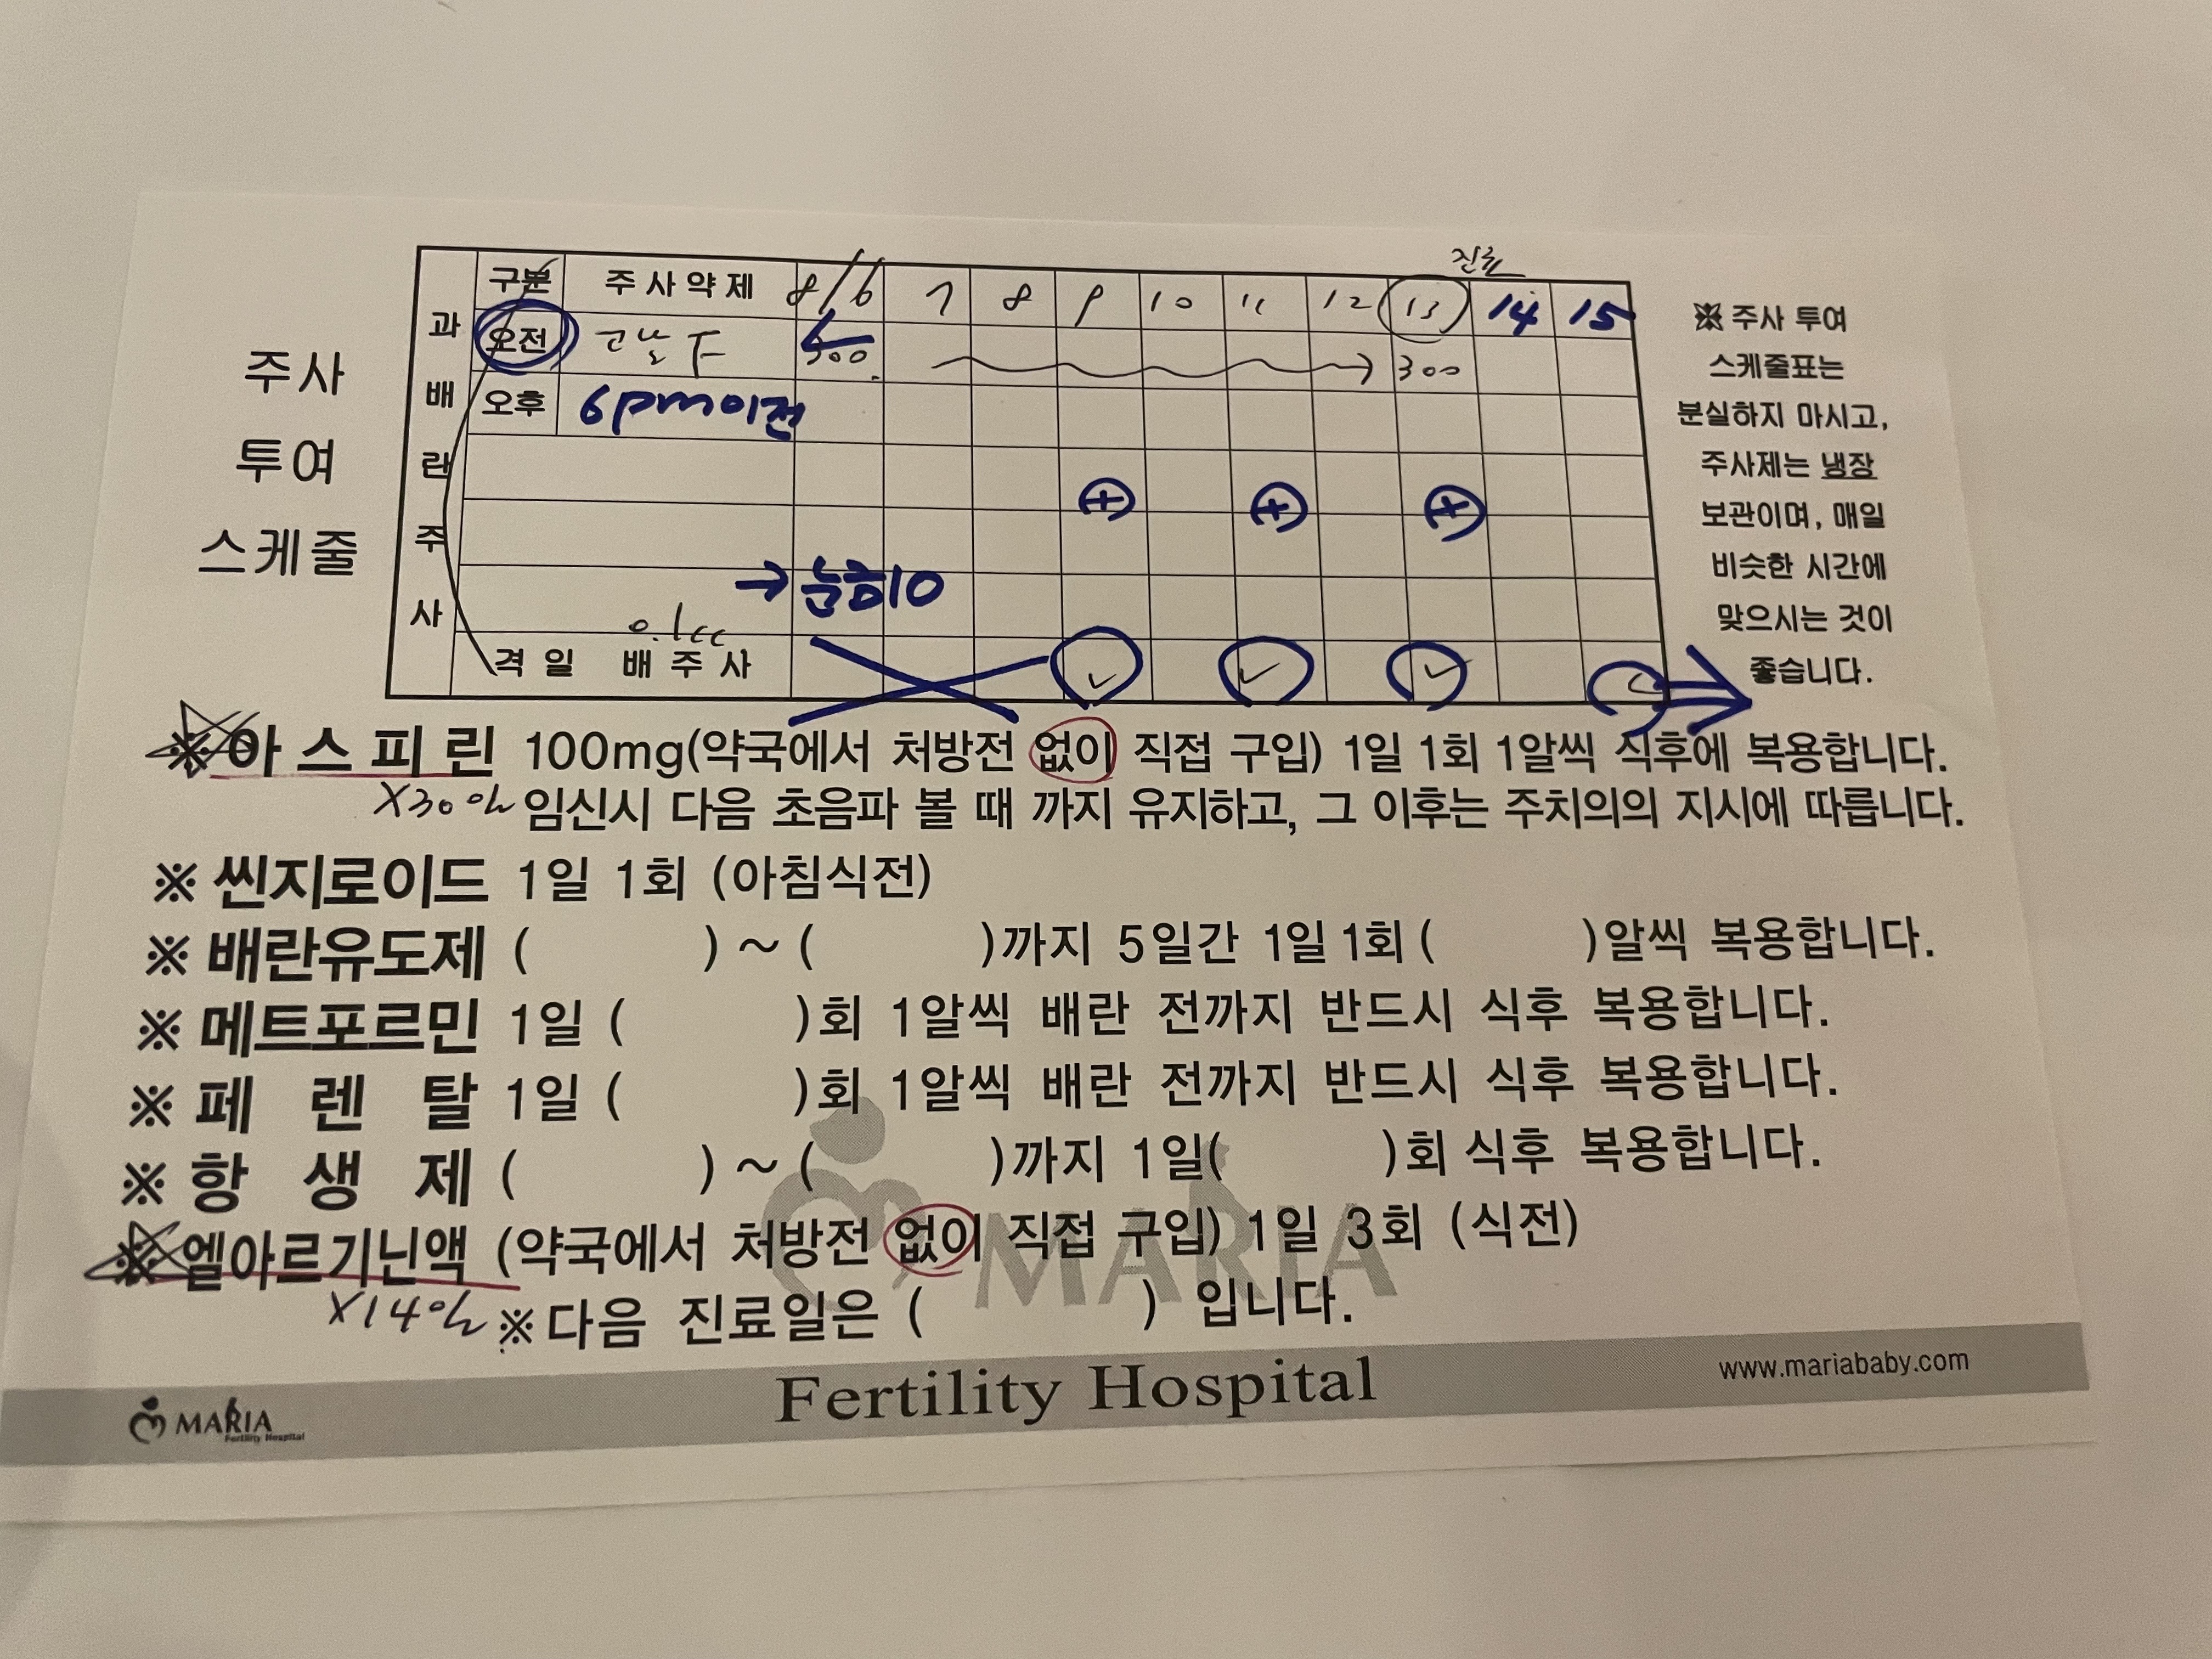 주사
투여
스케줄
과배란주사
진료
구분 주사약제 8/6 7 8 9 10 11 12 13 14 15
오전 고날F 300 300
오후 6pm이전
+ + +
→
0.1cc
격일 배주사 ✓ ✓ ✓
※ 주사 투여
스케줄표는
분실하지 마시고,
주사제는 냉장
보관이며, 매일
비슷한 시간에
맞으시는 것이
좋습니다.
※아스피린 100mg(약국에서 처방전 없이 직접 구입) 1일 1회 1알씩 식후에 복용합니다.
X30알 임신시 다음 초음파 볼 때 까지 유지하고, 그 이후는 주치의의 지시에 따릅니다.
※ 씬지로이드 1일 1회 (아침식전)
※ 배란유도제 ( ) ~ ( )까지 5일간 1일 1회 ( )알씩 복용합니다.
※ 메트포르민 1일 ( )회 1알씩 배란 전까지 반드시 식후 복용합니다.
※ 페렌탈 1일 ( )회 1알씩 배란 전까지 반드시 식후 복용합니다.
※ 항생제 ( ) ~ ( )까지 1일( )회 식후 복용합니다.
※ 엘아르기닌액 (약국에서 처방전 없이 직접 구입) 1일 3회 (식전)
X14 ※다음 진료일은 ( ) 입니다.
MARIA
MARIA Fertility Hospital
Fertility Hospital
www.mariababy.com